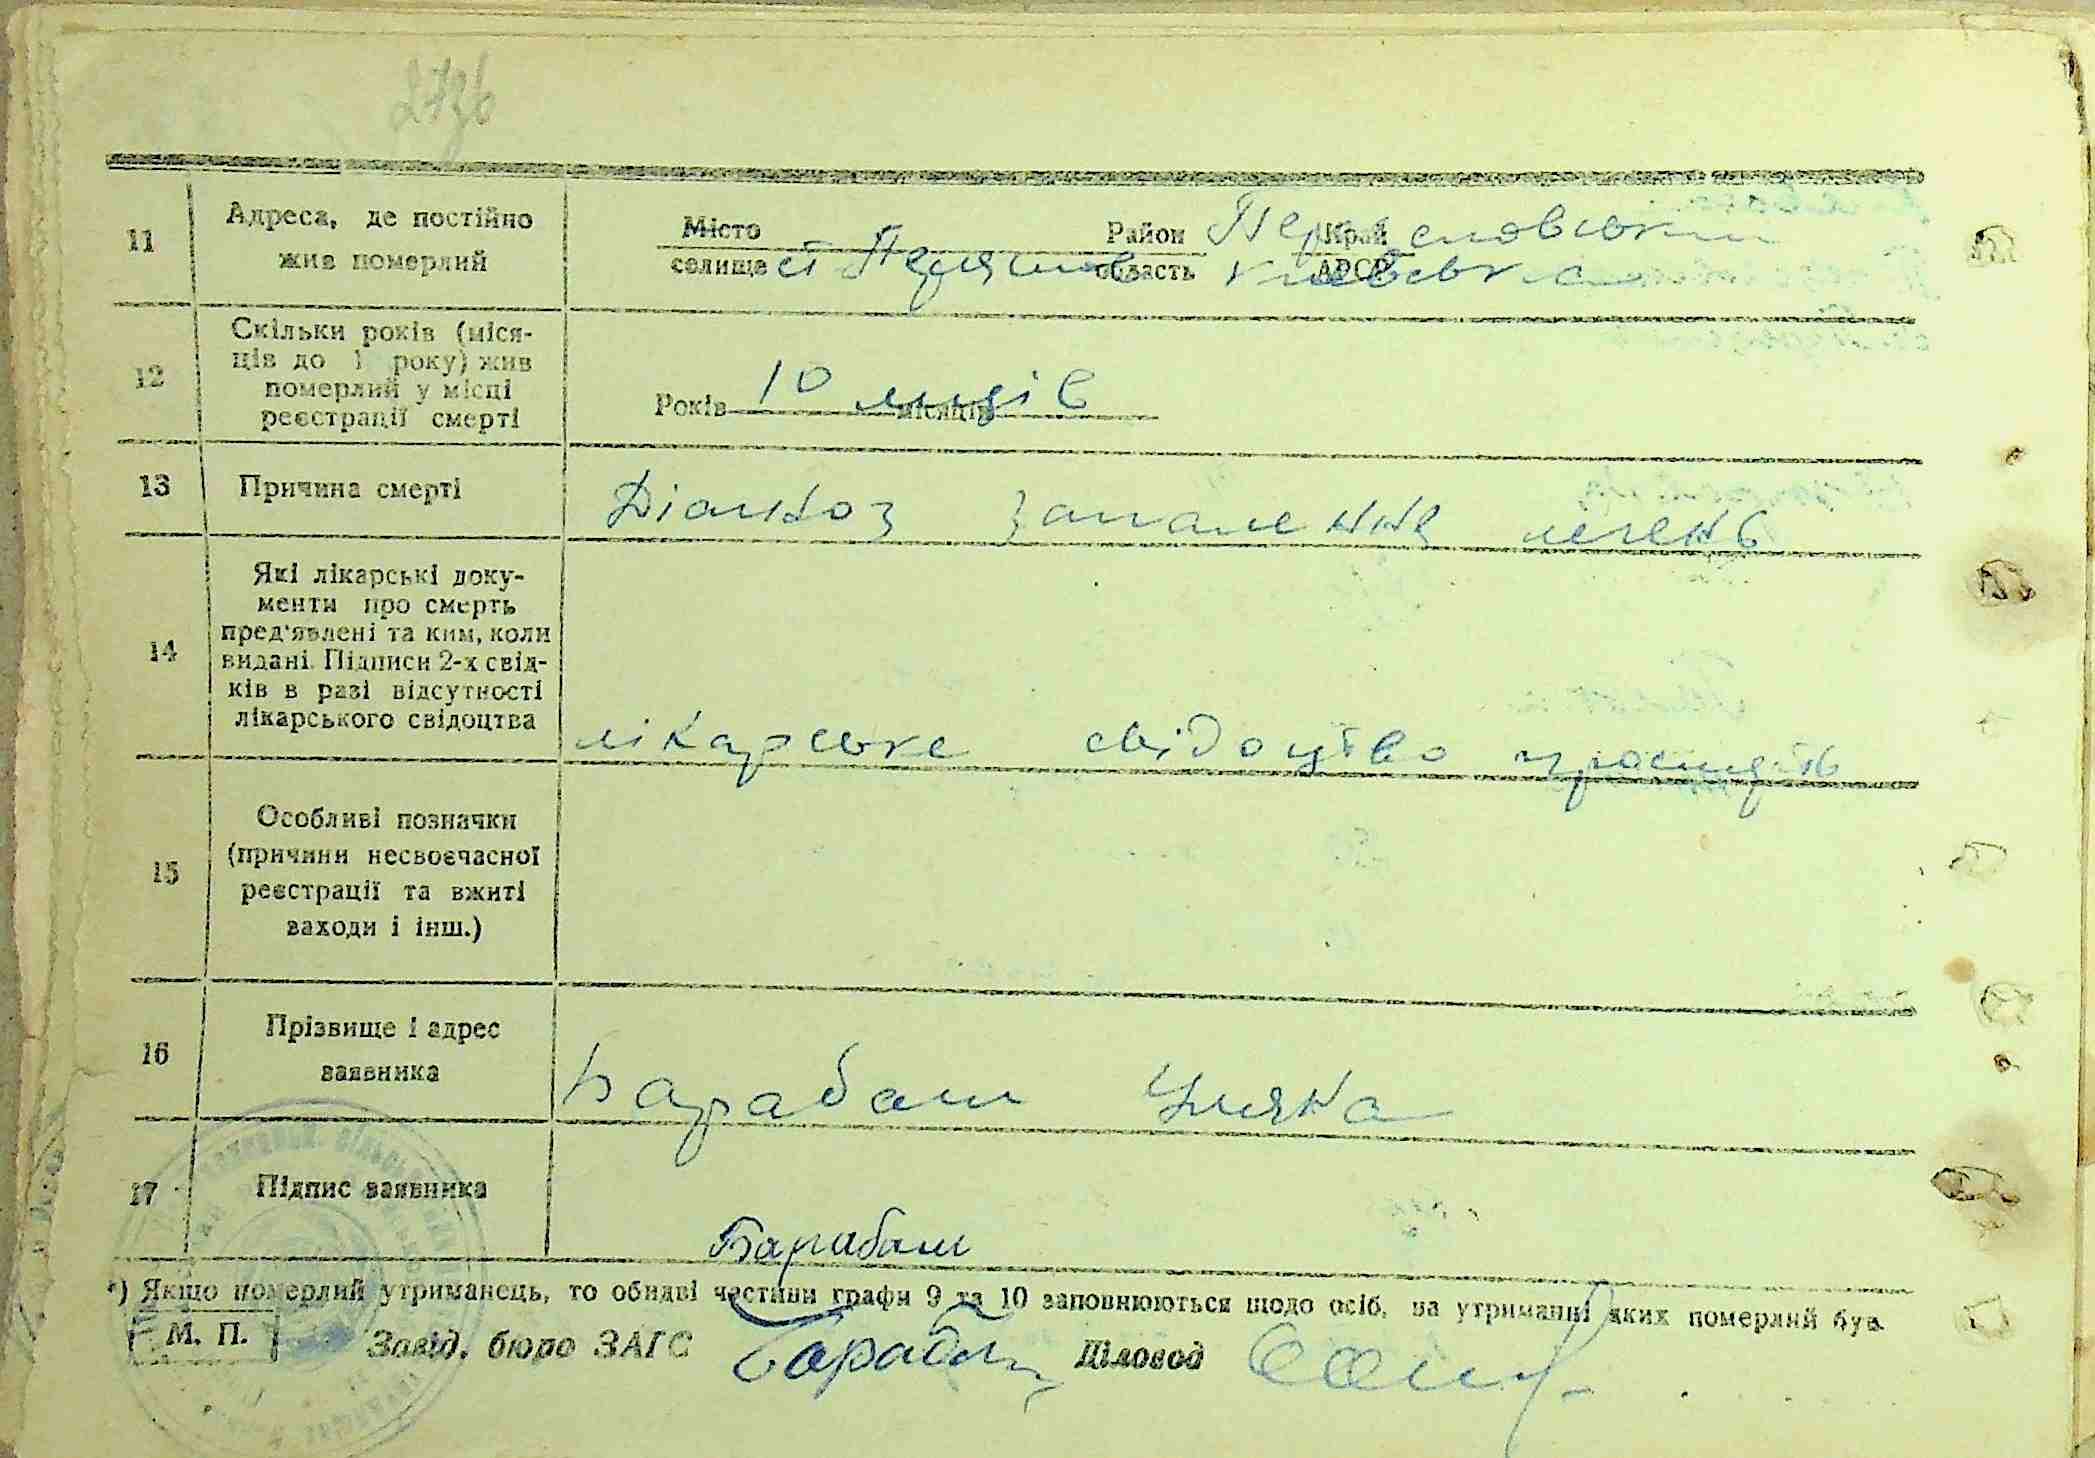 11
Адреса, де постійно
жив померлий
Місто Район Край
селище область Київська АРСР
12
Скільки років (міся-
ців до 1 року) жив
померлий у місці
реєстрації смерті
Років 10 місяців
13
Причина смерті
Діагноз запалення легень
14
Які лікарські доку-
менти про смерть
пред'явлені та ким, коли
видані. Підписи 2-х свід-
ків в разі відсутності
лікарського свідоцтва
лікарське свідоцтво
15
Особливі позначки
(причини несвоєчасної
реєстрації та вжиті
заходи і інш.)
16
Прізвище і адрес
заявника
Барабаш
17
Підпис заявника
Барабаш
*) Якщо померлий утриманець, то обидві частини графи 9 та 10 заповнюються щодо осіб, на утриманні яких померлий був.
М. П. Завід. бюро ЗАГС Діловод